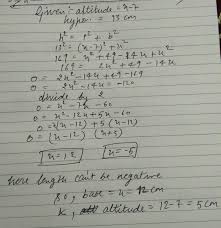 Given:- altitude = x-7
hypo. = 13 cm
h² = p² + b²
13² = (x-7)² + x²
169 = x² + 49 - 14x + x²
169 = 2x² + 49 - 14x
0 = 2x² - 14x + 49 - 169
0 = 2x² - 14x - 120
divide by 2
0 = x² - 7x - 60
0 = x² - 12x + 5x - 60
0 = x(x - 12) + 5(x - 12)
0 = (x - 12) (x + 5)
x = 12 x = -5
here length can't be negative
So, base = x = 12 cm
altitude = 12 - 7 = 5 cm